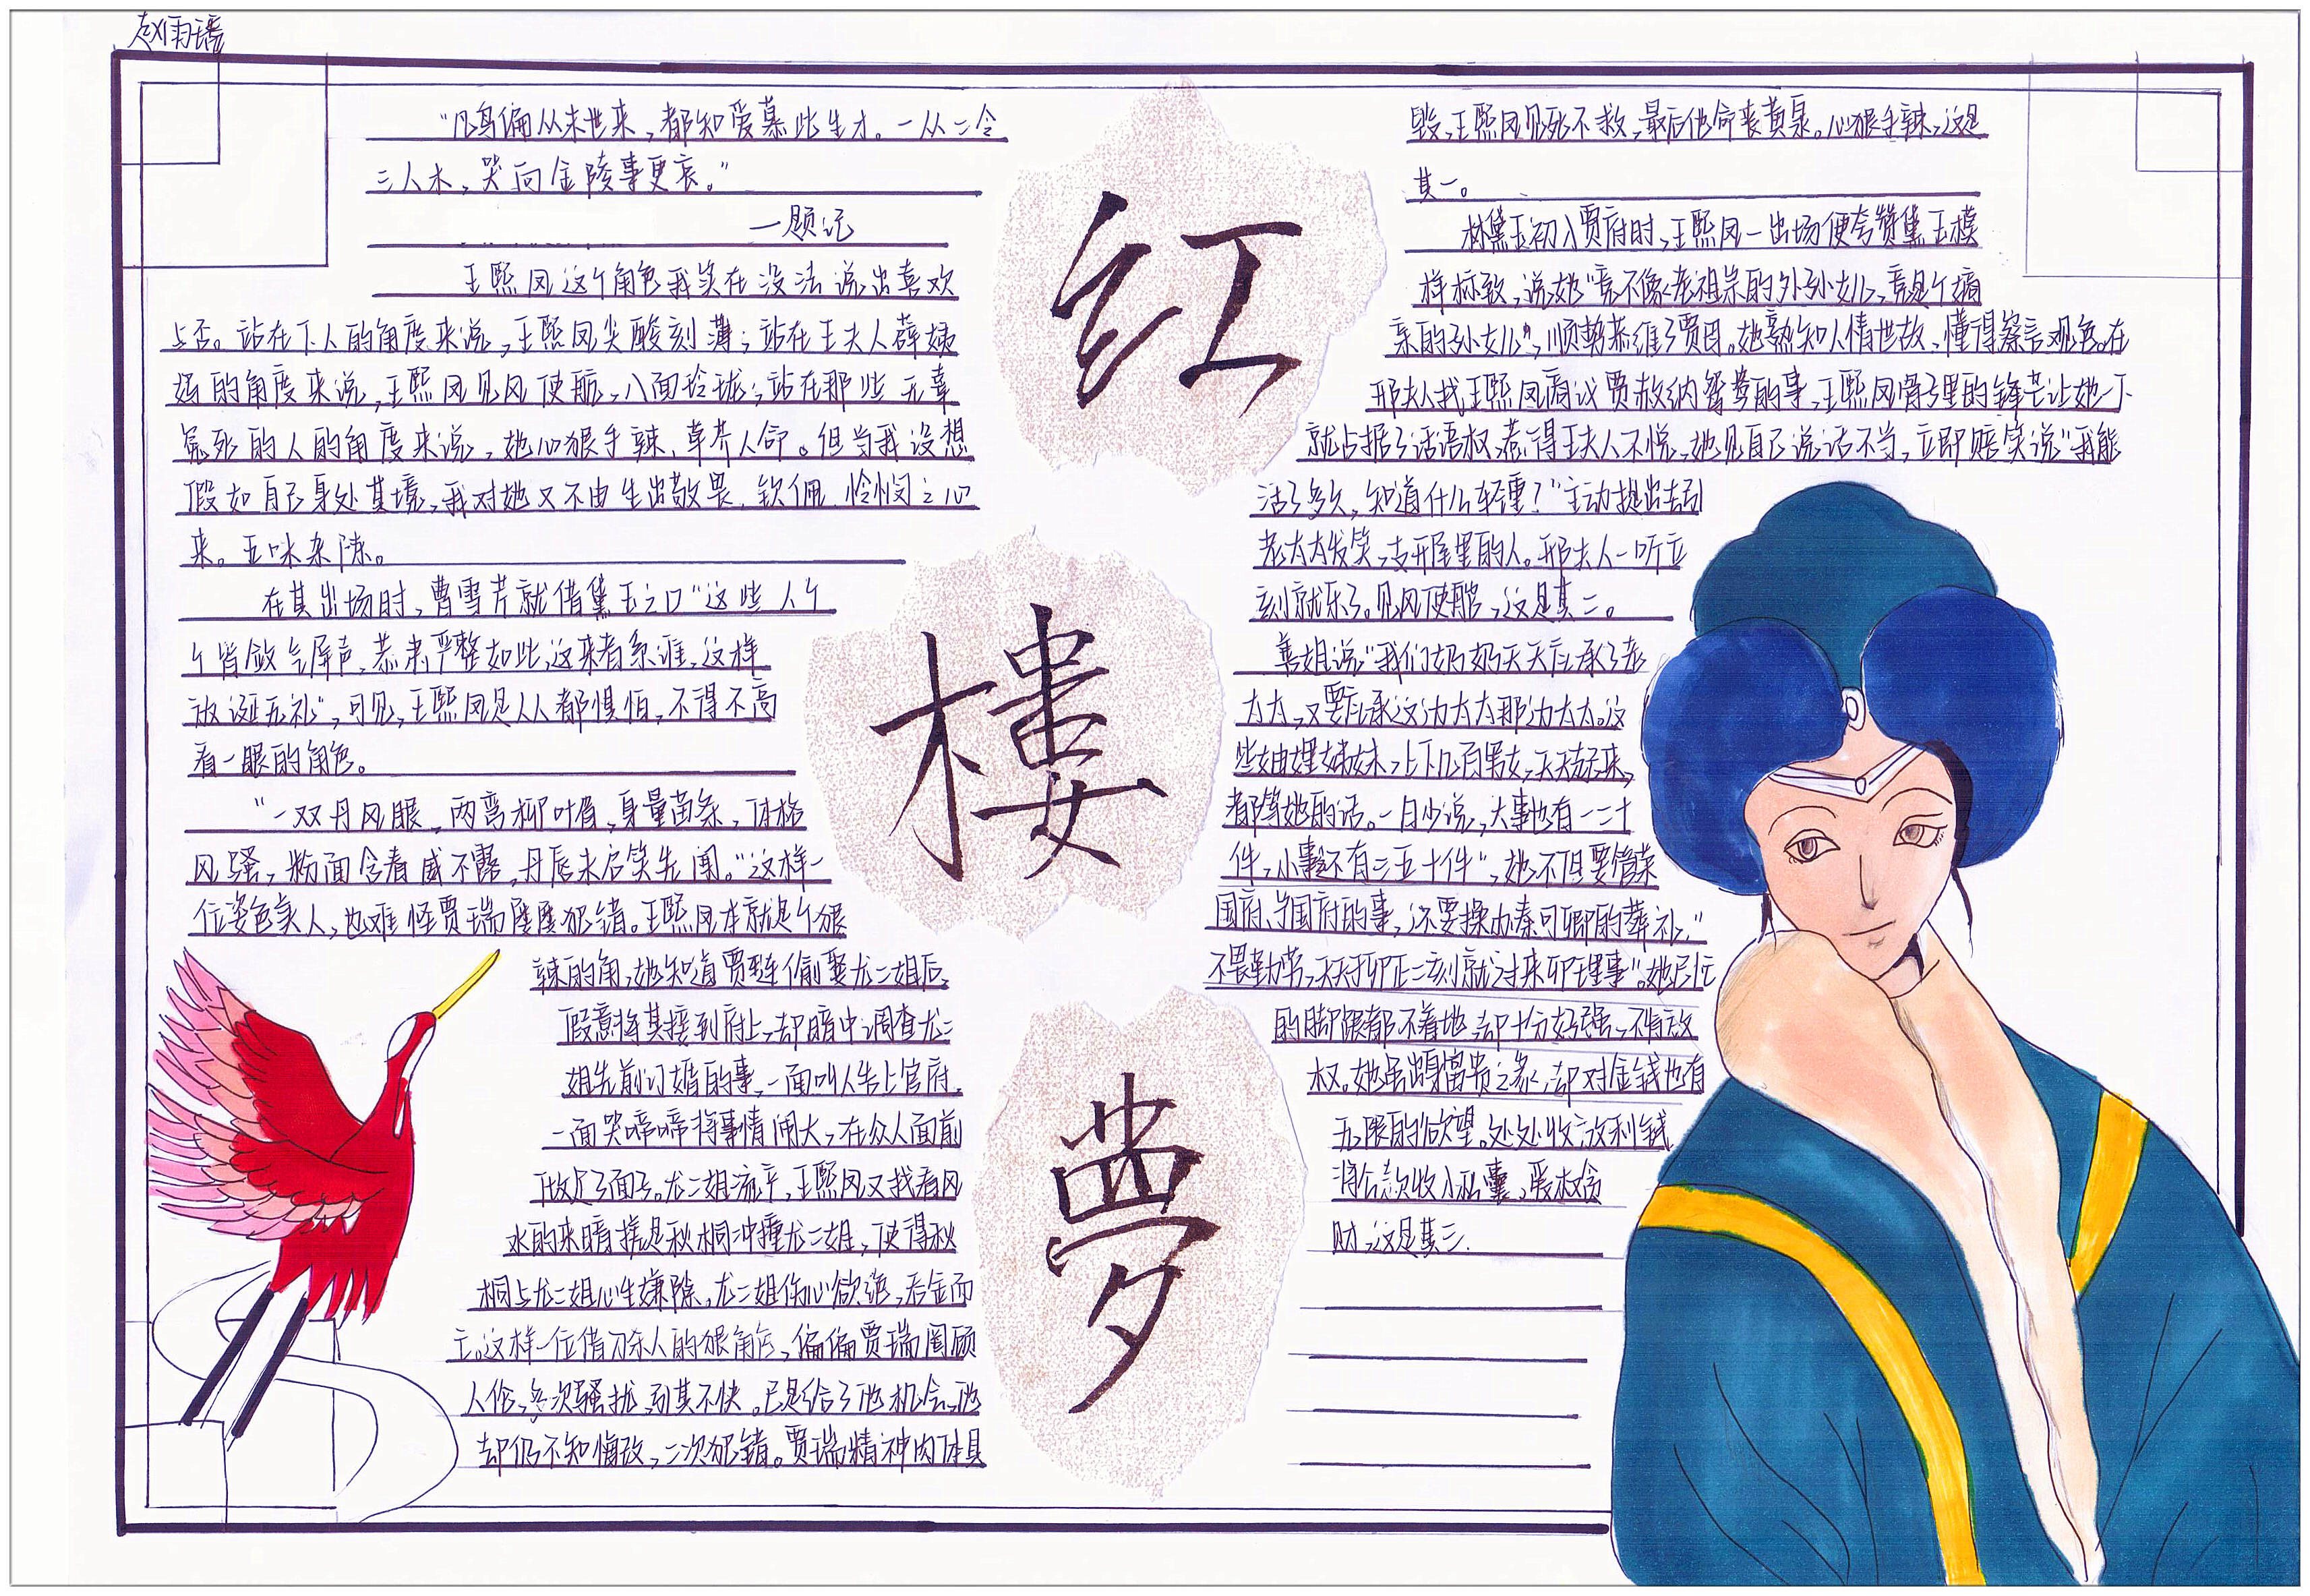 赵雨瑶
"凡鸟偏从末世来,都知爱慕此生才。一从二令
三人木,哭向金陵事更哀。"
—题记
王熙凤这个角色我实在没法说出喜欢
与否。站在下人的角度来说,王熙凤尖酸刻薄;站在王夫人薛姨
妈的角度来说,王熙凤见风使舵,八面玲珑;站在那些无辜
冤死的人的角度来说,她心狠手辣,草芥人命。但当我设想
假如自己身处其境,我对她又不由生出敬畏、钦佩、怜悯之心
来。五味杂陈。
在其出场时,曹雪芹就借黛玉之口"这些人个
个皆敛气屏声,恭肃严整如此,这来者系谁,这样
放诞无礼",可见,王熙凤是人人都惧怕,不得不高
看一眼的角色。
"一双丹凤眼,两弯柳叶眉,身量苗条,体格
风骚,粉面含春威不露,丹唇未启笑先闻。"这样一
位姿色美人,也难怪贾瑞屡屡犯错。王熙凤本就是个狠
辣的角,她知道贾琏偷娶尤二姐后,
假意将其接到府上,却暗中调查尤二
姐先前订婚的事,一面叫人告上官府,
一面哭啼啼将事情闹大,在众人面前
做足了面子。尤二姐流产,王熙凤又找看风
水的来暗搓是秋桐冲撞尤二姐,使得秋
桐与尤二姐心生嫌隙,尤二姐伤心欲绝,吞金而
亡。这样一位借刀杀人的狠角色,偏偏贾瑞罔顾
人伦,多次骚扰,到其不快。已是给了他机会,他
却仍不知悔改,二次犯错。贾瑞精神肉体具
红
楼
夢
毁,王熙凤见死不救,最后他命丧黄泉。心狠手辣,这是
其一。
林黛玉初入贾府时,王熙凤一出场便夸赞黛玉模
样标致,说她"竟不像老祖宗的外孙女儿,竟是个嫡
亲的孙女儿",顺势恭维了贾母。她熟知人情世故,懂得察言观色。在
邢夫人找王熙凤商议贾赦纳鸳鸯的事,王熙凤骨子里的锋芒让她一下
就占据了话语权,惹得王夫人不悦,她见自己说话不当,立即赔笑说"我能
活了多久,知道什么轻重?"主动提出去引
老太太发笑,支开屋里的人。邢夫人一听立
刻就乐了。见风使舵,这是其二。
善姐说"我们奶奶天天应承了老
太太,又要应承这边太太那边太太。这
些妯娌姊妹,上下几百男女,天天起来,
都等她的话。一日少说,大事也有一二十
件,小事还有三五十件",她不但要管荣
国府、宁国府的事,还要操办秦可卿的葬礼,"
不畏勤劳,天天于卯正二刻就过来卯理事"。她忙
的脚跟都不着地,却十分好强,不肯放
权。她虽出身富贵之家,却对金钱也有
无限的欲望。处处收放利钱,
将公款收入私囊,爱权贪
财,这是其三.